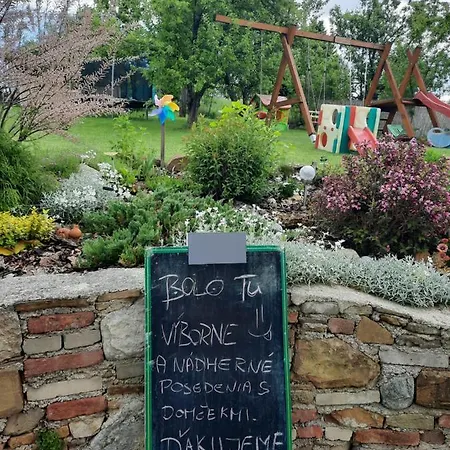 BOLO TU
VÍBORNE
A NÁDHERNÉ
POSEDENIA S
DOMČEKMI.
ĎAKUJEME